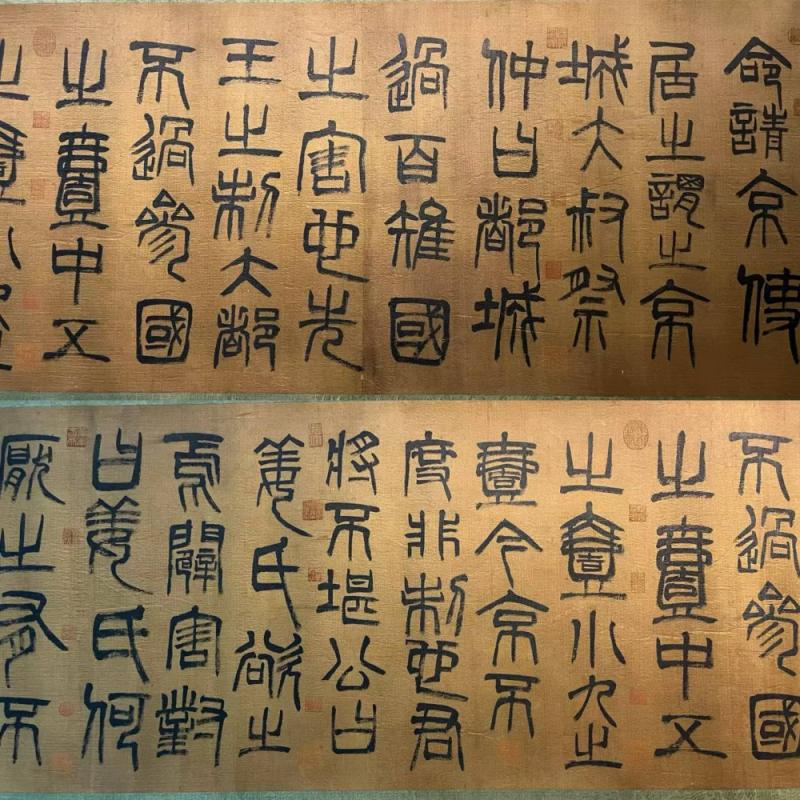 命請京使
居之謂之京
城大叔祭
仲曰都城
過百雉國
之害也先
王之制大都
不過參國
之壹中五
之壹小
不過參國
之壹中五
之壹小九之
壹今京不
度非制也君
將不堪公曰
姜氏欲之
焉闢害對
曰姜氏何
厭之有不